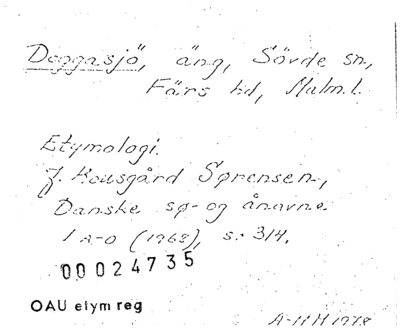 Doggasjö, äng, Sövde sn,
Färs hd, Malm. l.
Etymologi.
J. Kousgård Sørensen,
Danske sø- og ånavne.
1 A-D (1968), s. 314.
00024735
OAU etym reg
1978